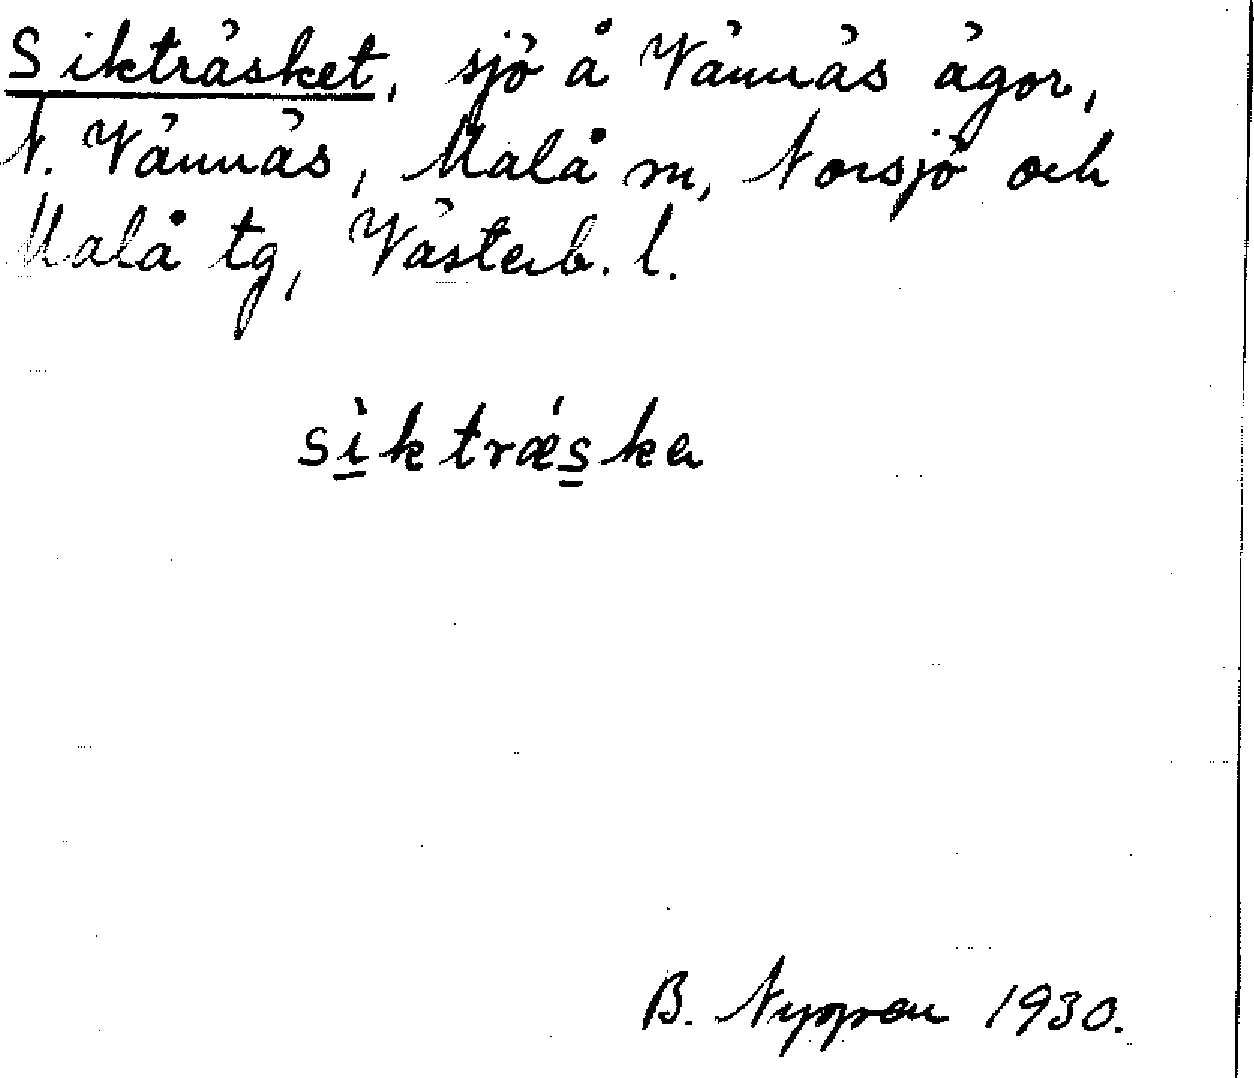 Sikträsket, sjö å Vännäs ägor,
N. Vännäs, Malå sn, Norsjö och
Malå tg, Västerb. l.
sìktrǽska
B. Nygren 1930.